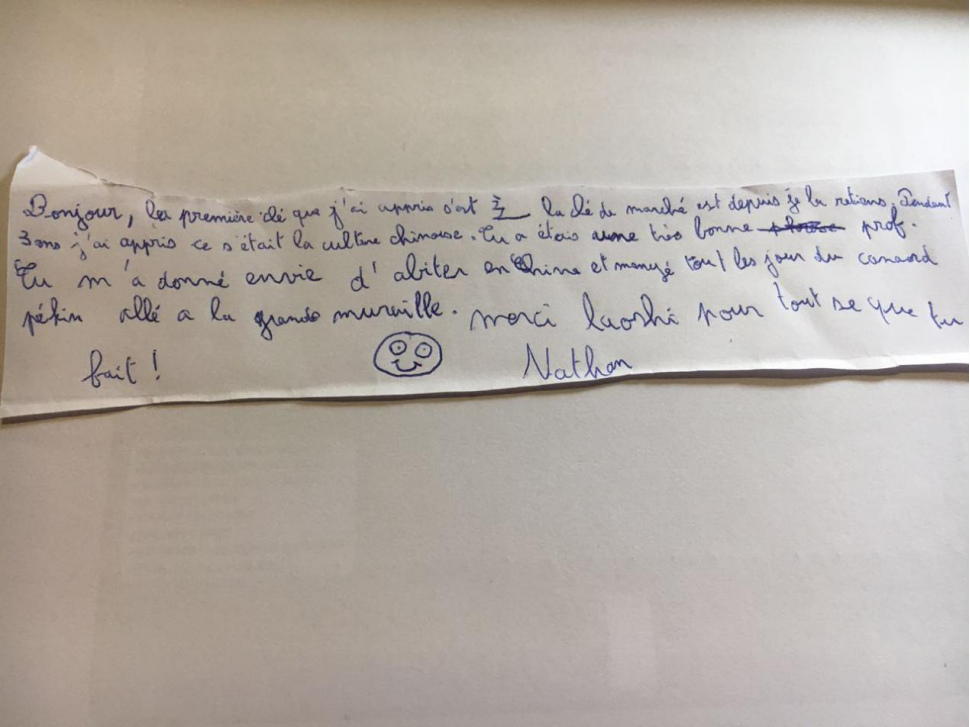 Bonjour, la première clé que j'ai appris s'est 辶 la clé du marché est depuis je la retiens. Pendant
3 ans j'ai appris ce s'était la culture chinoise. Tu a étais une très bonne prof.
Tu m'a donné envie d'abiter en Chine et mangé tout les jour du canaord
pékin allé a la grande muraille. merci laoshi pour tout se que tu
fait !
Nathan